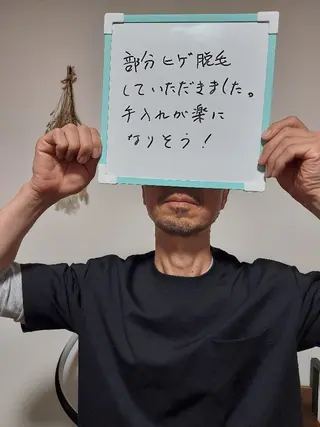 部分ヒゲ脱毛
していただきました。
手入れが楽に
なりそう！